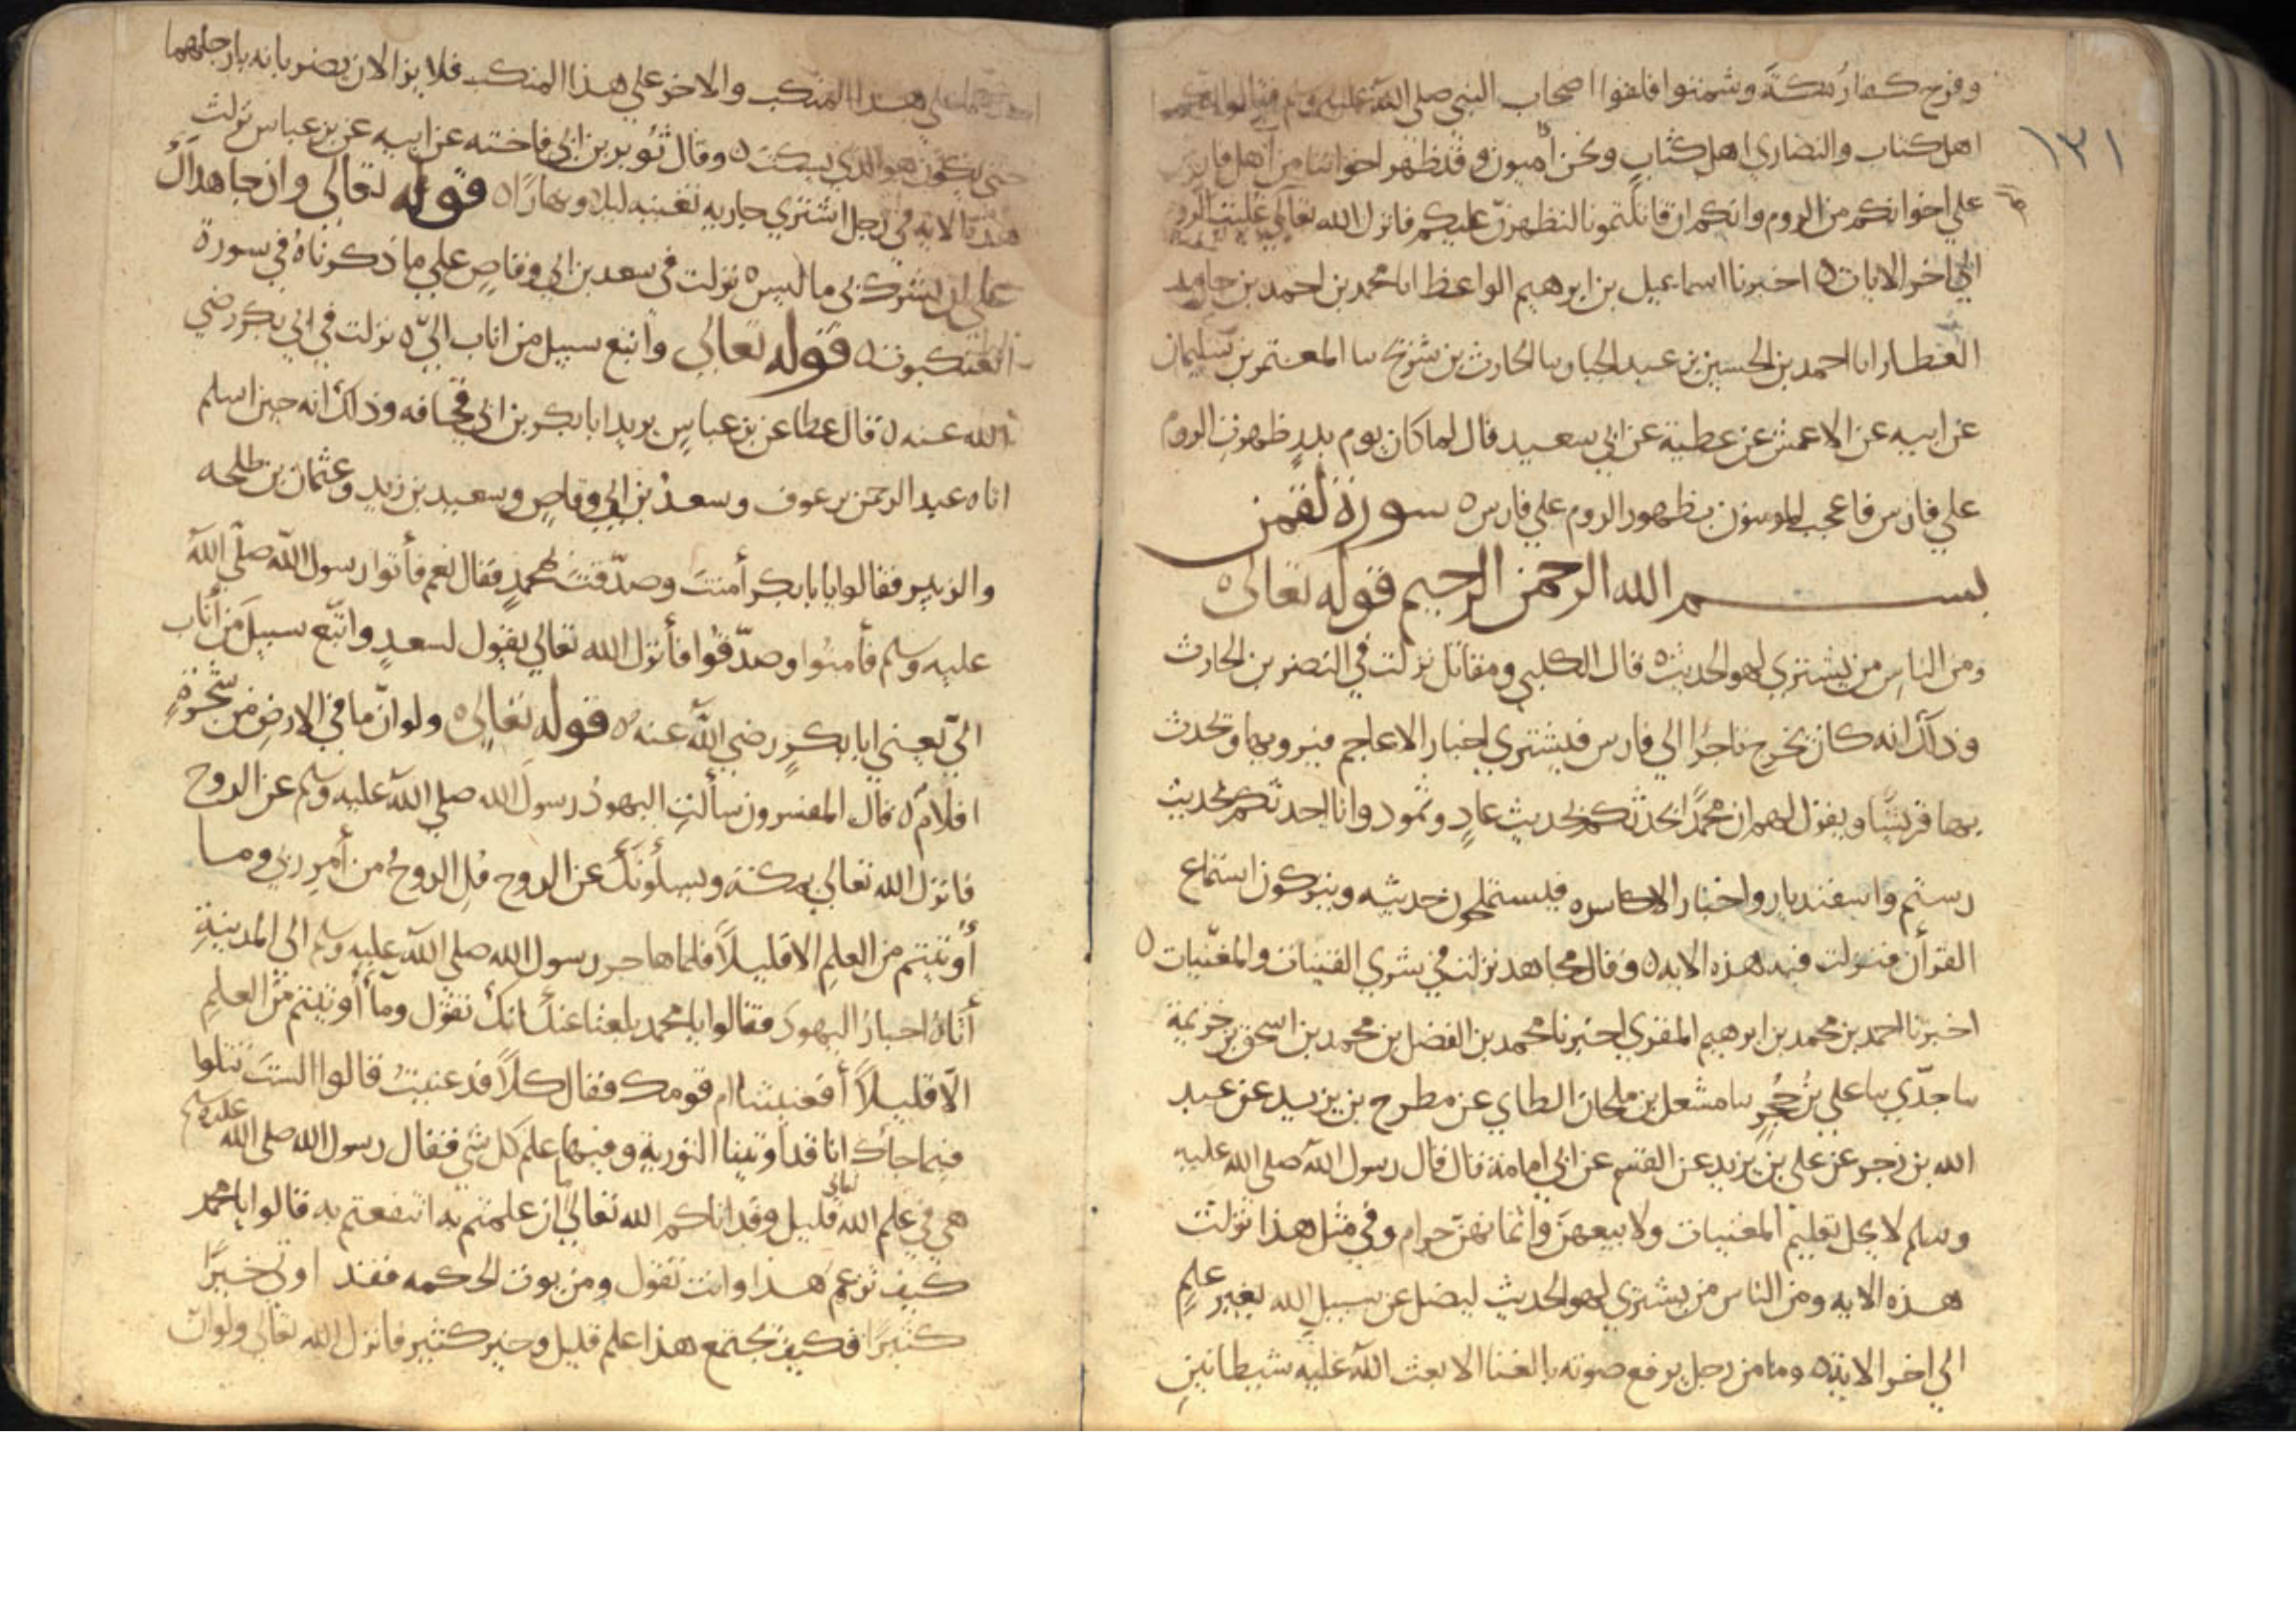 وفرح كفار مكة وشمتوا فلقوا اصحاب النبي صلى الله عليه وسلم فقالوا انكم
اهل كتاب والنصارى اهل كتاب ونحن أميون وقد ظهر اخواننا من أهل فارس
١٣١
على اخوانكم من الروم وانكم ان قاتلتمونا لنظهرن عليكم فانزل الله تعالى غلبت الروم
الي اخر الايات ه اخبرنا اسماعيل بن ابرهيم الواعظ انا محمد بن احمد بن حامد
العطار انا احمد بن الحسين بن عبد الجبار سا الحارث بن شريح سا المعتمر بن سليمان
عن ابيه عن الاعمش عن عطية عن ابي سعيد قال لما كان يوم بدرٍ ظهرت الروم
علي فارس فاعجب المومنون بظهور الروم علي فارس ه سورة لقمن
بسم الله الرحمن الرحيم قوله تعالى ه
ومن الناس من يشتري لهو الحديث ه قال الكلبي ومقاتل نزلت في النضر بن الحارث
وذلك انه كان يخرج تاجرًا الي فارس فيشتري اخبار الاعاجم فيرويها ويحدث
بها قريشًا ويقول لهم ان محمدًا يحدثكم بحديث عادٍ وثمود وانا احدثكم بحديث
رستم واسفنديار واخبار الاكاسره فيستملحون حديثه ويتركون استماع
القرآن فنزلت فيه هذه الايه ه وقال مجاهد نزلت في شري القينات والمغنّيات ه
اخبرنا احمد بن محمد بن ابرهيم المقري اخبرنا محمد بن الفضل بن محمد بن اسحق بن خزيمة
سا جدّي سا علي بن حُجرٍ سا مشعل بن ملحان الطاي عن مطرح بن يزيد عن عبيد
الله بن زحر عن علي بن يزيد عن القسم عن ابي امامة قال قال رسول الله صلى الله عليه
وسلم لا يحل تعليم المغنيات ولا بيعهنّ واثمانهنّ حرام وفي مثل هذا نزلت
هذه الايه ومن الناس من يشتري لهو الحديث ليضل عن سبيل الله بغير علمٍ
الي اخر الاية ه وما من رجل يرفع صوته بالغنا الا بعث الله عليه شيطانين
احدهما علي هذا المنكب والاخر علي هذا المنكب فلا يزالان يضربانه بارجلهما
حتى يكون هو الذي يسكت ه وقال ثوير بن ابي فاخته عن ابيه عن بن عباس نزلت
هذه الايه في رجل اشترى جاريه تغنيه ليلا ونهارًا ه قوله تعالي وان جاهداك
علي ان تشرك بي ما ليس ه نزلت في سعد بن ابي وقاصٍ علي ما ذكرناه في سورة
العنكبوت ه قوله تعالى واتبع سبيل من اناب اليّ ه نزلت في ابي بكر رضي
الله عنه ه قال عطا عن بن عباسٍ يريد ابا بكر بن ابي قحافه وذلك انه حين اسلم
اتاه عبد الرحمن بن عوف وسعدُ بن ابي وقاصٍ وسعيد بن زيد وعثمان بن طلحه
والزبير فقالوا يا با بكر أمنتَ وصدّقتَ محمدٍ فقال نعم فأتوا رسول الله صلّى الله
عليه وسلم فأمنوا وصدّقوا فأنزل الله تعالي يقول لسعدٍ واتّبع سبيل مَن أناب
اليّ يعني ابا بكرٍ رضي الله عنه ه قوله تعالى ه ولو انّ ما في الارض من شجرةٍ
اقلام ه قال المفسرون سألتِ اليهودُ رسول الله صلى الله عليه وسلم عن الروح
فانزل الله تعالي بمكة ويسلونك عن الروح قل الروحُ من أمرِ ربي وما
أوتيتم من العلم الا قليلًا فلما هاجر رسول الله صلى الله عليه وسلم الى المدينةِ
أتاهُ احبارُ اليهود فقالوا يا محمد بلغنا عنك انك تقول وما أوتيتم من العلمِ
الّا قليلًا أفعنيتنا ام قومك فقال كلّاً قد عنيتُ قالوا الستَ تتلوا
فيما جاك انا قد أوتينا التورية وفيها علم كل شيٍ فقال رسول الله صلى الله عليه وسلم
هي في علم الله تعالى قليل وقد اتاكم الله تعالي ما ان علمتم به انتفعتم به قالوا يا محمد
كيف تزعم هذا وانت تقول ومن يوت الحكمه فقد اوتي خيرًا
كثيرًا فكيف يجتمع هذا علم قليل وخير كثير فانزل الله تعالى ولو انّ